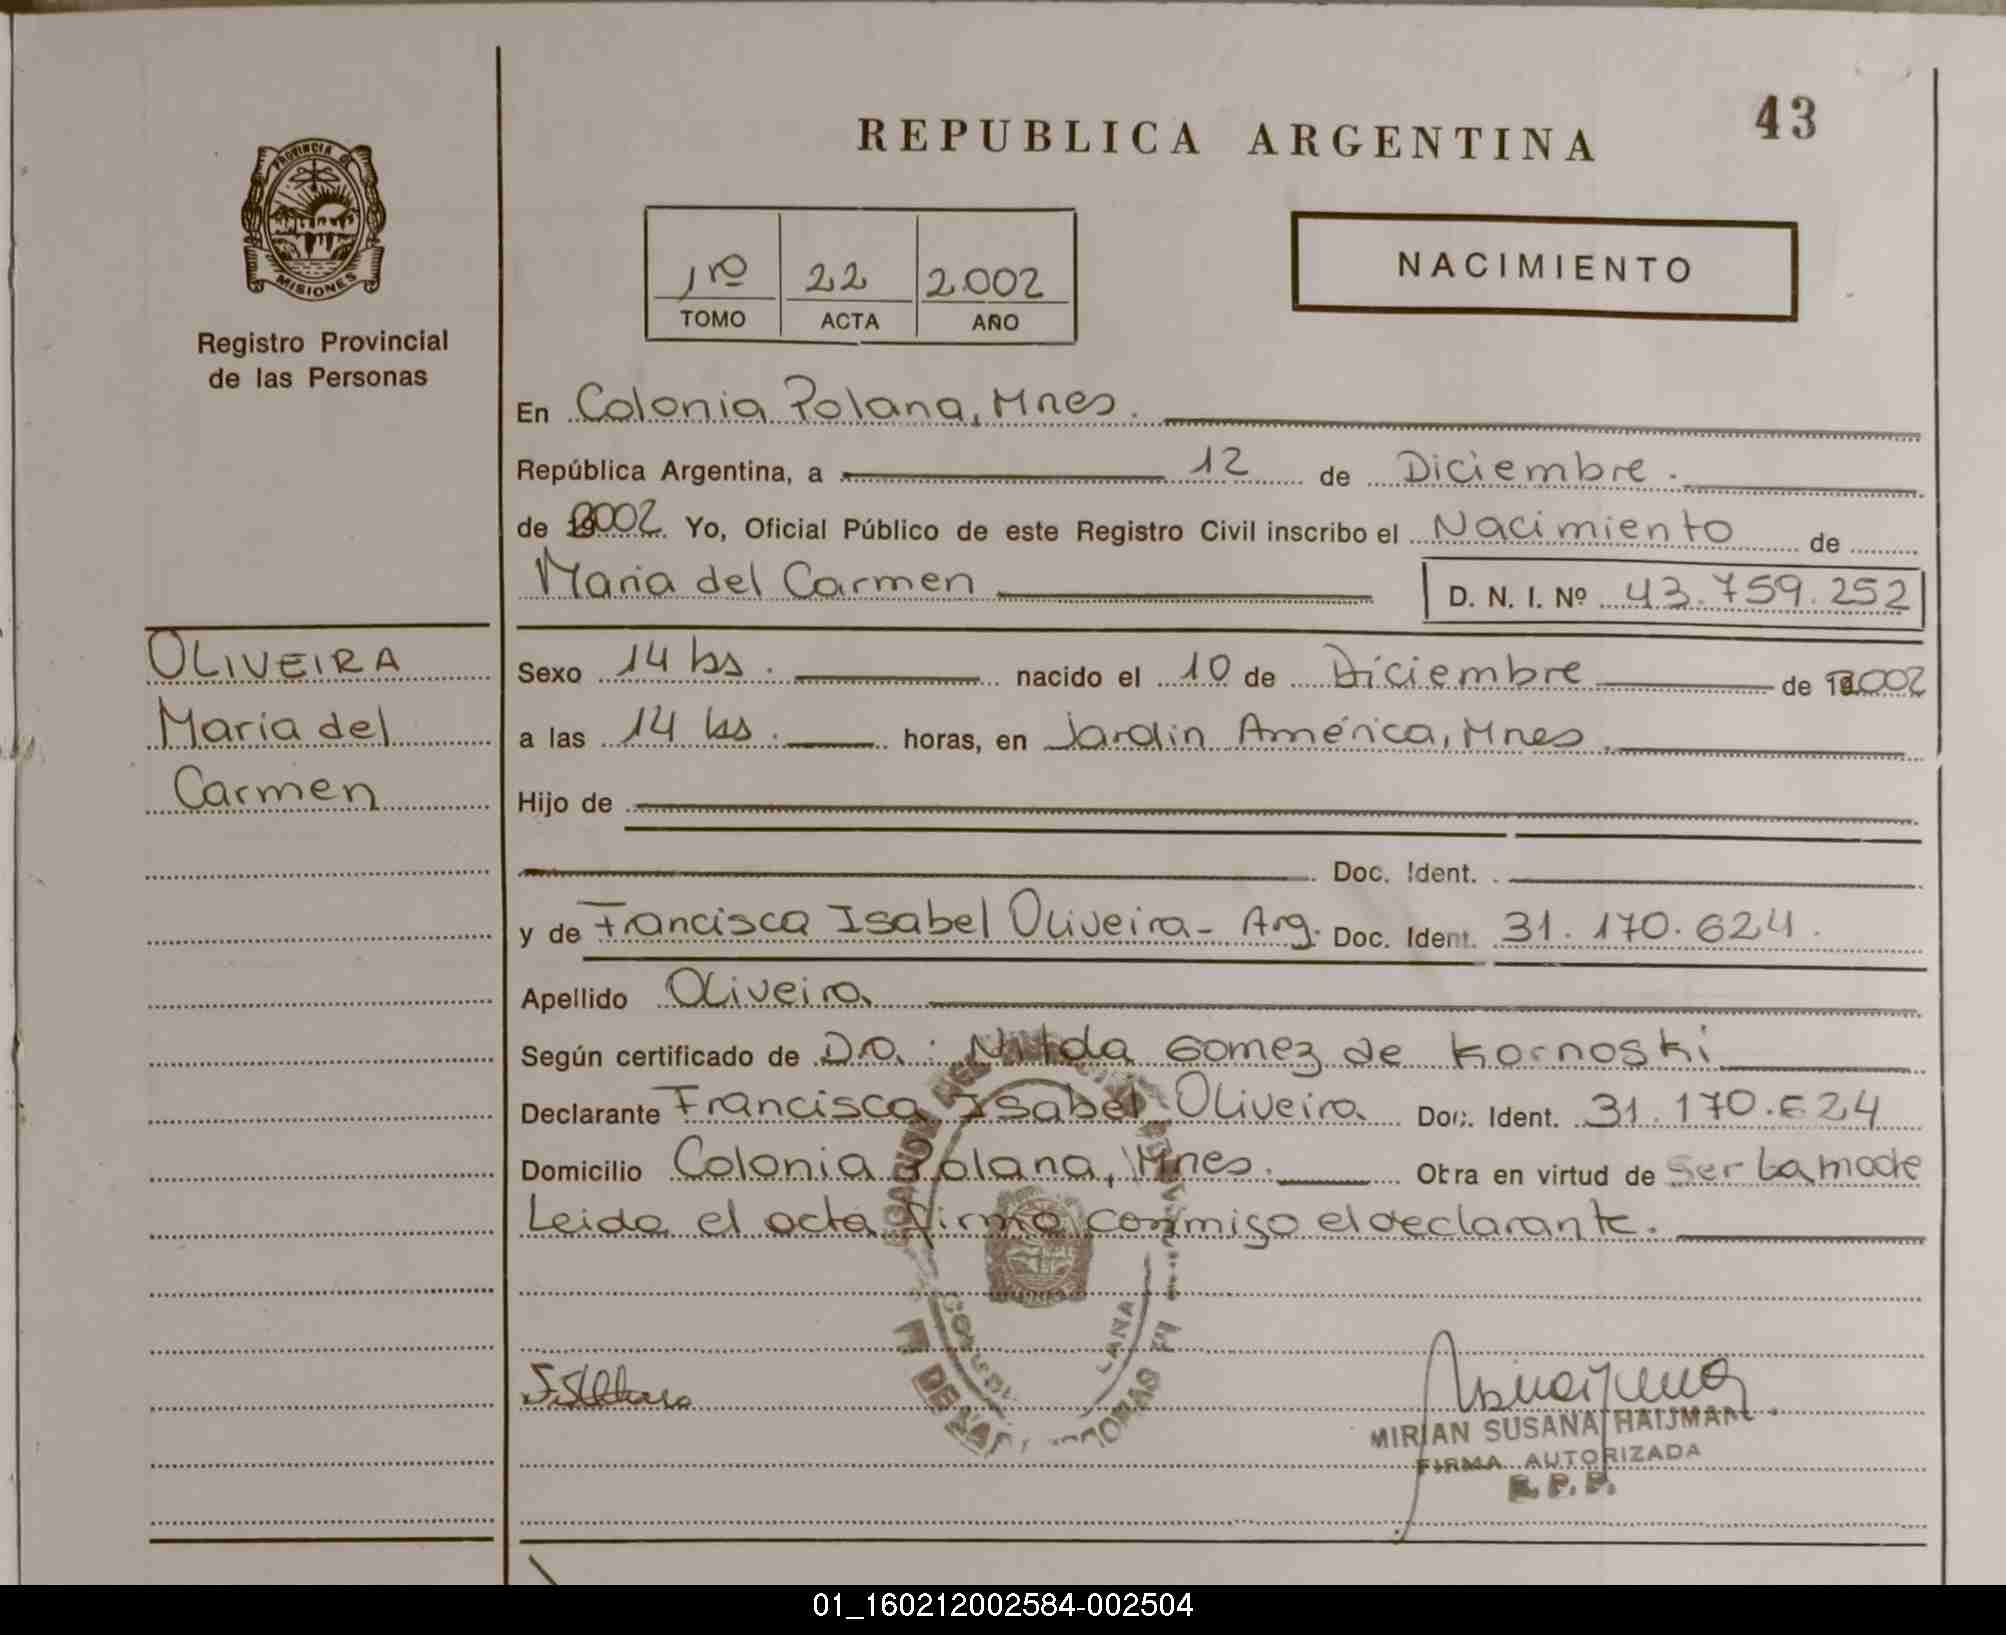 43
REPUBLICA ARGENTINA
PROVINCIA D
MISIONES
Registro Provincial
de las Personas
1ro 22 2.002
TOMO ACTA AÑO
NACIMIENTO
En Colonia Polana, Mnes.
República Argentina, a 12 de Diciembre.
de 2002 Yo, Oficial Público de este Registro Civil inscribo el Nacimiento de
Maria del Carmen D. N. I. Nº 43.759.252
OLIVEIRA
Maria del
Carmen
Sexo 14 hs. nacido el 10 de Diciembre de 2002
a las 14 hs. horas, en Jardin América, Mnes.
Hijo de
Doc. Ident.
y de Francisca Isabel Oliveira - Arg. Doc. Ident. 31.170.624.
Apellido Oliveira
Según certificado de Dra.: Nilda Gomez de Kornoski
Declarante Francisca Isabel Oliveira Doc. Ident. 31.170.624
Domicilio Colonia Polana, Mnes. Obra en virtud de Ser La madre
Leida el acta firma conmigo el declarante.
MIRIAN SUSANA HAIJMAN
FIRMA AUTORIZADA
R. P. P.
01_160212002584-002504